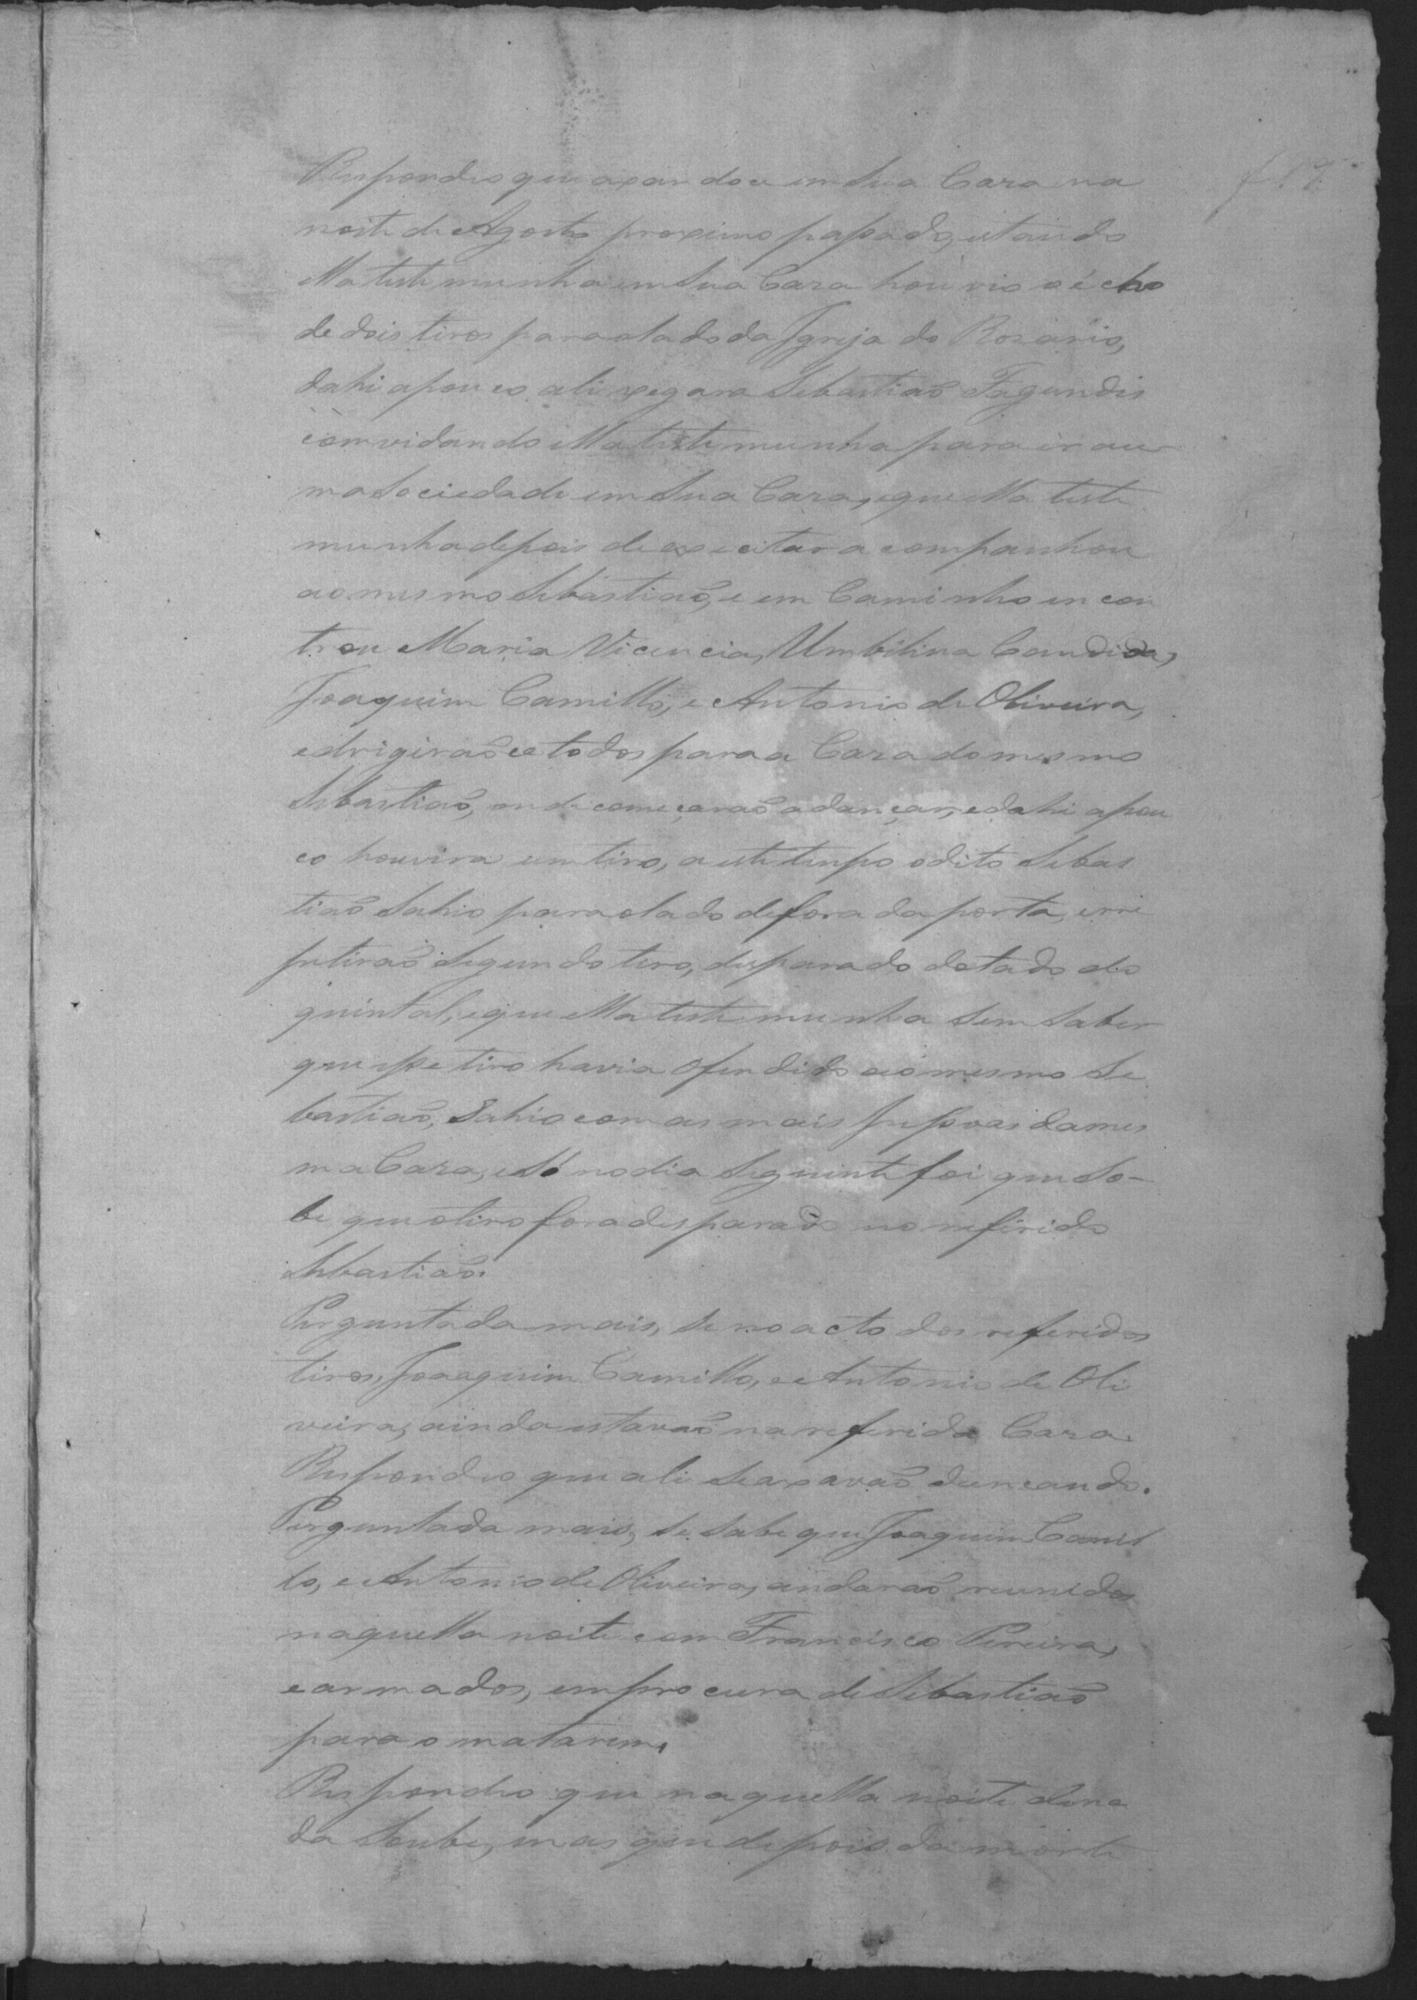 Respondeo que axandoce em Sua Caza na
noite de Agosto proximo passado, estando
Ella testemunha em Sua Caza houvio o écho
de dois tiros para o lado da Igreja do Rozario,
dahi a pouco ali xegara Sebastiaõ Fagundis
comvidando Ella testemunha para ir a u
ma Sociedade em Sua Caza, e que Ella teste
munha depois de exzeitar acompanhou
ao mesmo Sebastiaõ, e em Caminho encon
trou Maria Vicencia, Umbilina Candida,
Joaquim Camillo, e Antonio de Oliveira,
e drigiraõ ce todos para a Caza do mesmo
Sebastiaõ, onde começaraõ a dançar, e dahi a pou
co houvira um tiro, a este tempo o dito Sebas
tiaõ Sahio para o lado de fora da porta, e rre
petiraõ Segundo tiro, disparado do lado do
quintal, e que Ella testemunha Sem Saber
que esse tiro havia ofendido ao mesmo Se
bastiaõ, Sahio com as mais pessoas da mes
ma Caza, e Só no dia Seguinte foi que So-
be que o tiro fora disparado no referido
Sebastiaõ.
Perguntada mais, Se no acto dos referidos
tiros, Joaquim Camillo, e Antonio de Oli
veira, ainda estavaõ na referida Caza.
Respondeo que ali Se axavaõ dancando.
Perguntada mais, Se Sabe que Joaquim Camil
lo, e Antonio de Oliveira, andaraõ reunidos
naquella noite com Francisco Pereira,
e armados, em procura de Sebastiaõ
para o matarem.
Respondeo que naquella noite de na
da Soube, mas que depois da morte